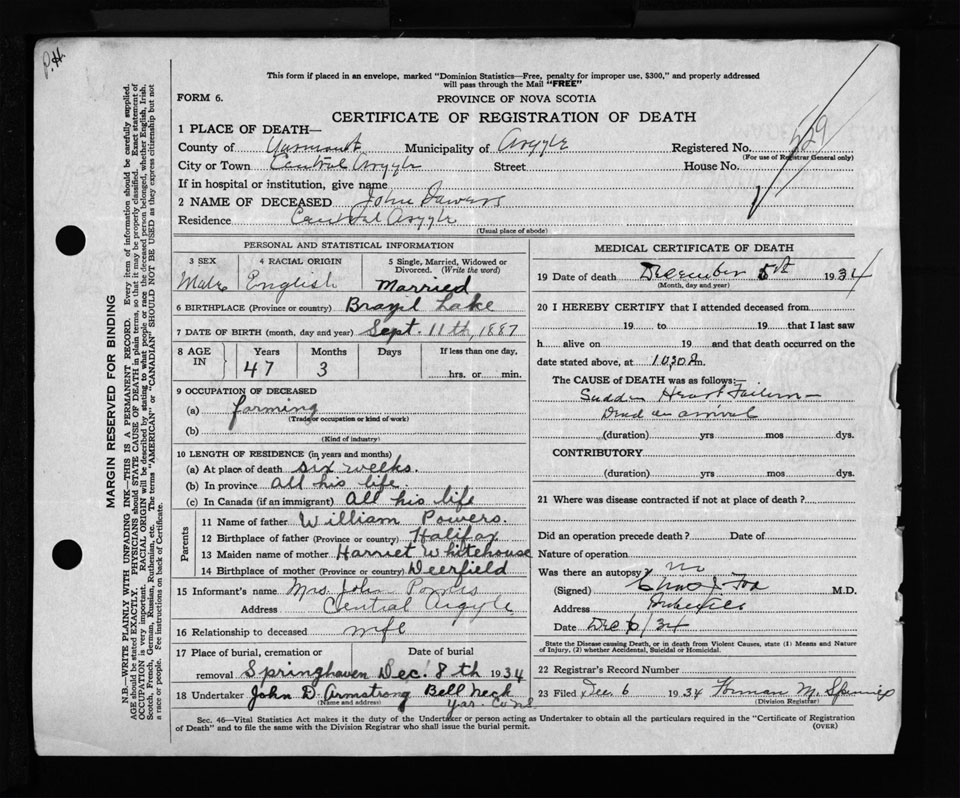 P.H.
This form if placed in an envelope, marked "Dominion Statistics—Free, penalty for improper use, $300," and properly addressed
will pass through the Mail "FREE"
FORM 6.
PROVINCE OF NOVA SCOTIA
CERTIFICATE OF REGISTRATION OF DEATH
1 PLACE OF DEATH—
County of Yarmouth Municipality of Argyle Registered No. 629
(For use of Registrar General only)
City or Town Central Argyle Street House No.
If in hospital or institution, give name
2 NAME OF DECEASED John Powers
Residence Central Argyle
(Usual place of abode)
PERSONAL AND STATISTICAL INFORMATION
3 SEX 4 RACIAL ORIGIN 5 Single, Married, Widowed or
Divorced. (Write the word)
Male English Married
6 BIRTHPLACE (Province or country) Brazil Lake
7 DATE OF BIRTH (month, day and year) Sept. 11th, 1887
8 AGE IN Years Months Days If less than one day,
47 3 hrs. or min.
9 OCCUPATION OF DECEASED
(a) farming
(Trade or occupation or kind of work)
(b)
(Kind of industry)
10 LENGTH OF RESIDENCE (in years and months)
(a) At place of death six weeks.
(b) In province all his life.
(c) In Canada (if an immigrant) All his life
Parents
11 Name of father William Powers.
12 Birthplace of father (Province or country) Halifax
13 Maiden name of mother Harriet Whitehouse
14 Birthplace of mother (Province or country) Deerfield
15 Informant's name Mrs John Powers
Address Central Argyle
16 Relationship to deceased wife
17 Place of burial, cremation or Date of burial
removal Springhaven Dec. 8th 1934
18 Undertaker John D. Armstrong Bell Neck
(Name and address) Yar. Co NS.
MEDICAL CERTIFICATE OF DEATH
19 Date of death December 5th 1934
(Month, day and year)
20 I HEREBY CERTIFY that I attended deceased from
19 to 19 that I last saw
h alive on 19 and that death occurred on the
date stated above, at 10,30 P.m.
The CAUSE OF DEATH was as follows:
Sudden Heart Failure—
Dead on arrival
(duration) yrs mos dys.
CONTRIBUTORY
(duration) yrs mos dys.
21 Where was disease contracted if not at place of death?
Did an operation precede death? Date of
Nature of operation
Was there an autopsy? no
(Signed) Fox M.D.
Address Pubnico
Date Dec 6/34
State the Disease causing Death, or in death from Violent Causes, state (1) Means and Nature
of Injury, (2) whether Accidental, Suicidal or Homicidal.
22 Registrar's Record Number
23 Filed Dec. 6 1934 Norman M. Spinney
(Division Registrar)
Sec. 46—Vital Statistics Act makes it the duty of the Undertaker or person acting as Undertaker to obtain all the particulars required in the "Certificate of Registration
of Death" and to file the same with the Division Registrar who shall issue the burial permit.
(OVER)
MARGIN RESERVED FOR BINDING
N.B.—WRITE PLAINLY WITH UNFADING INK—THIS IS A PERMANENT RECORD. Every item of information should be carefully supplied.
AGE should be stated EXACTLY. PHYSICIANS should STATE CAUSE OF DEATH in plain terms, so that it may be properly classified. Exact statement of
OCCUPATION is very important. RACIAL ORIGIN will be described by stating to what people or race the deceased person belonged, whether English, Irish,
Scotch, French, German, Russian, Ruthenian, etc. The terms "AMERICAN" or "CANADIAN" SHOULD NOT BE USED as they express citizenship but not
a race or people. See instructions on back of Certificate.